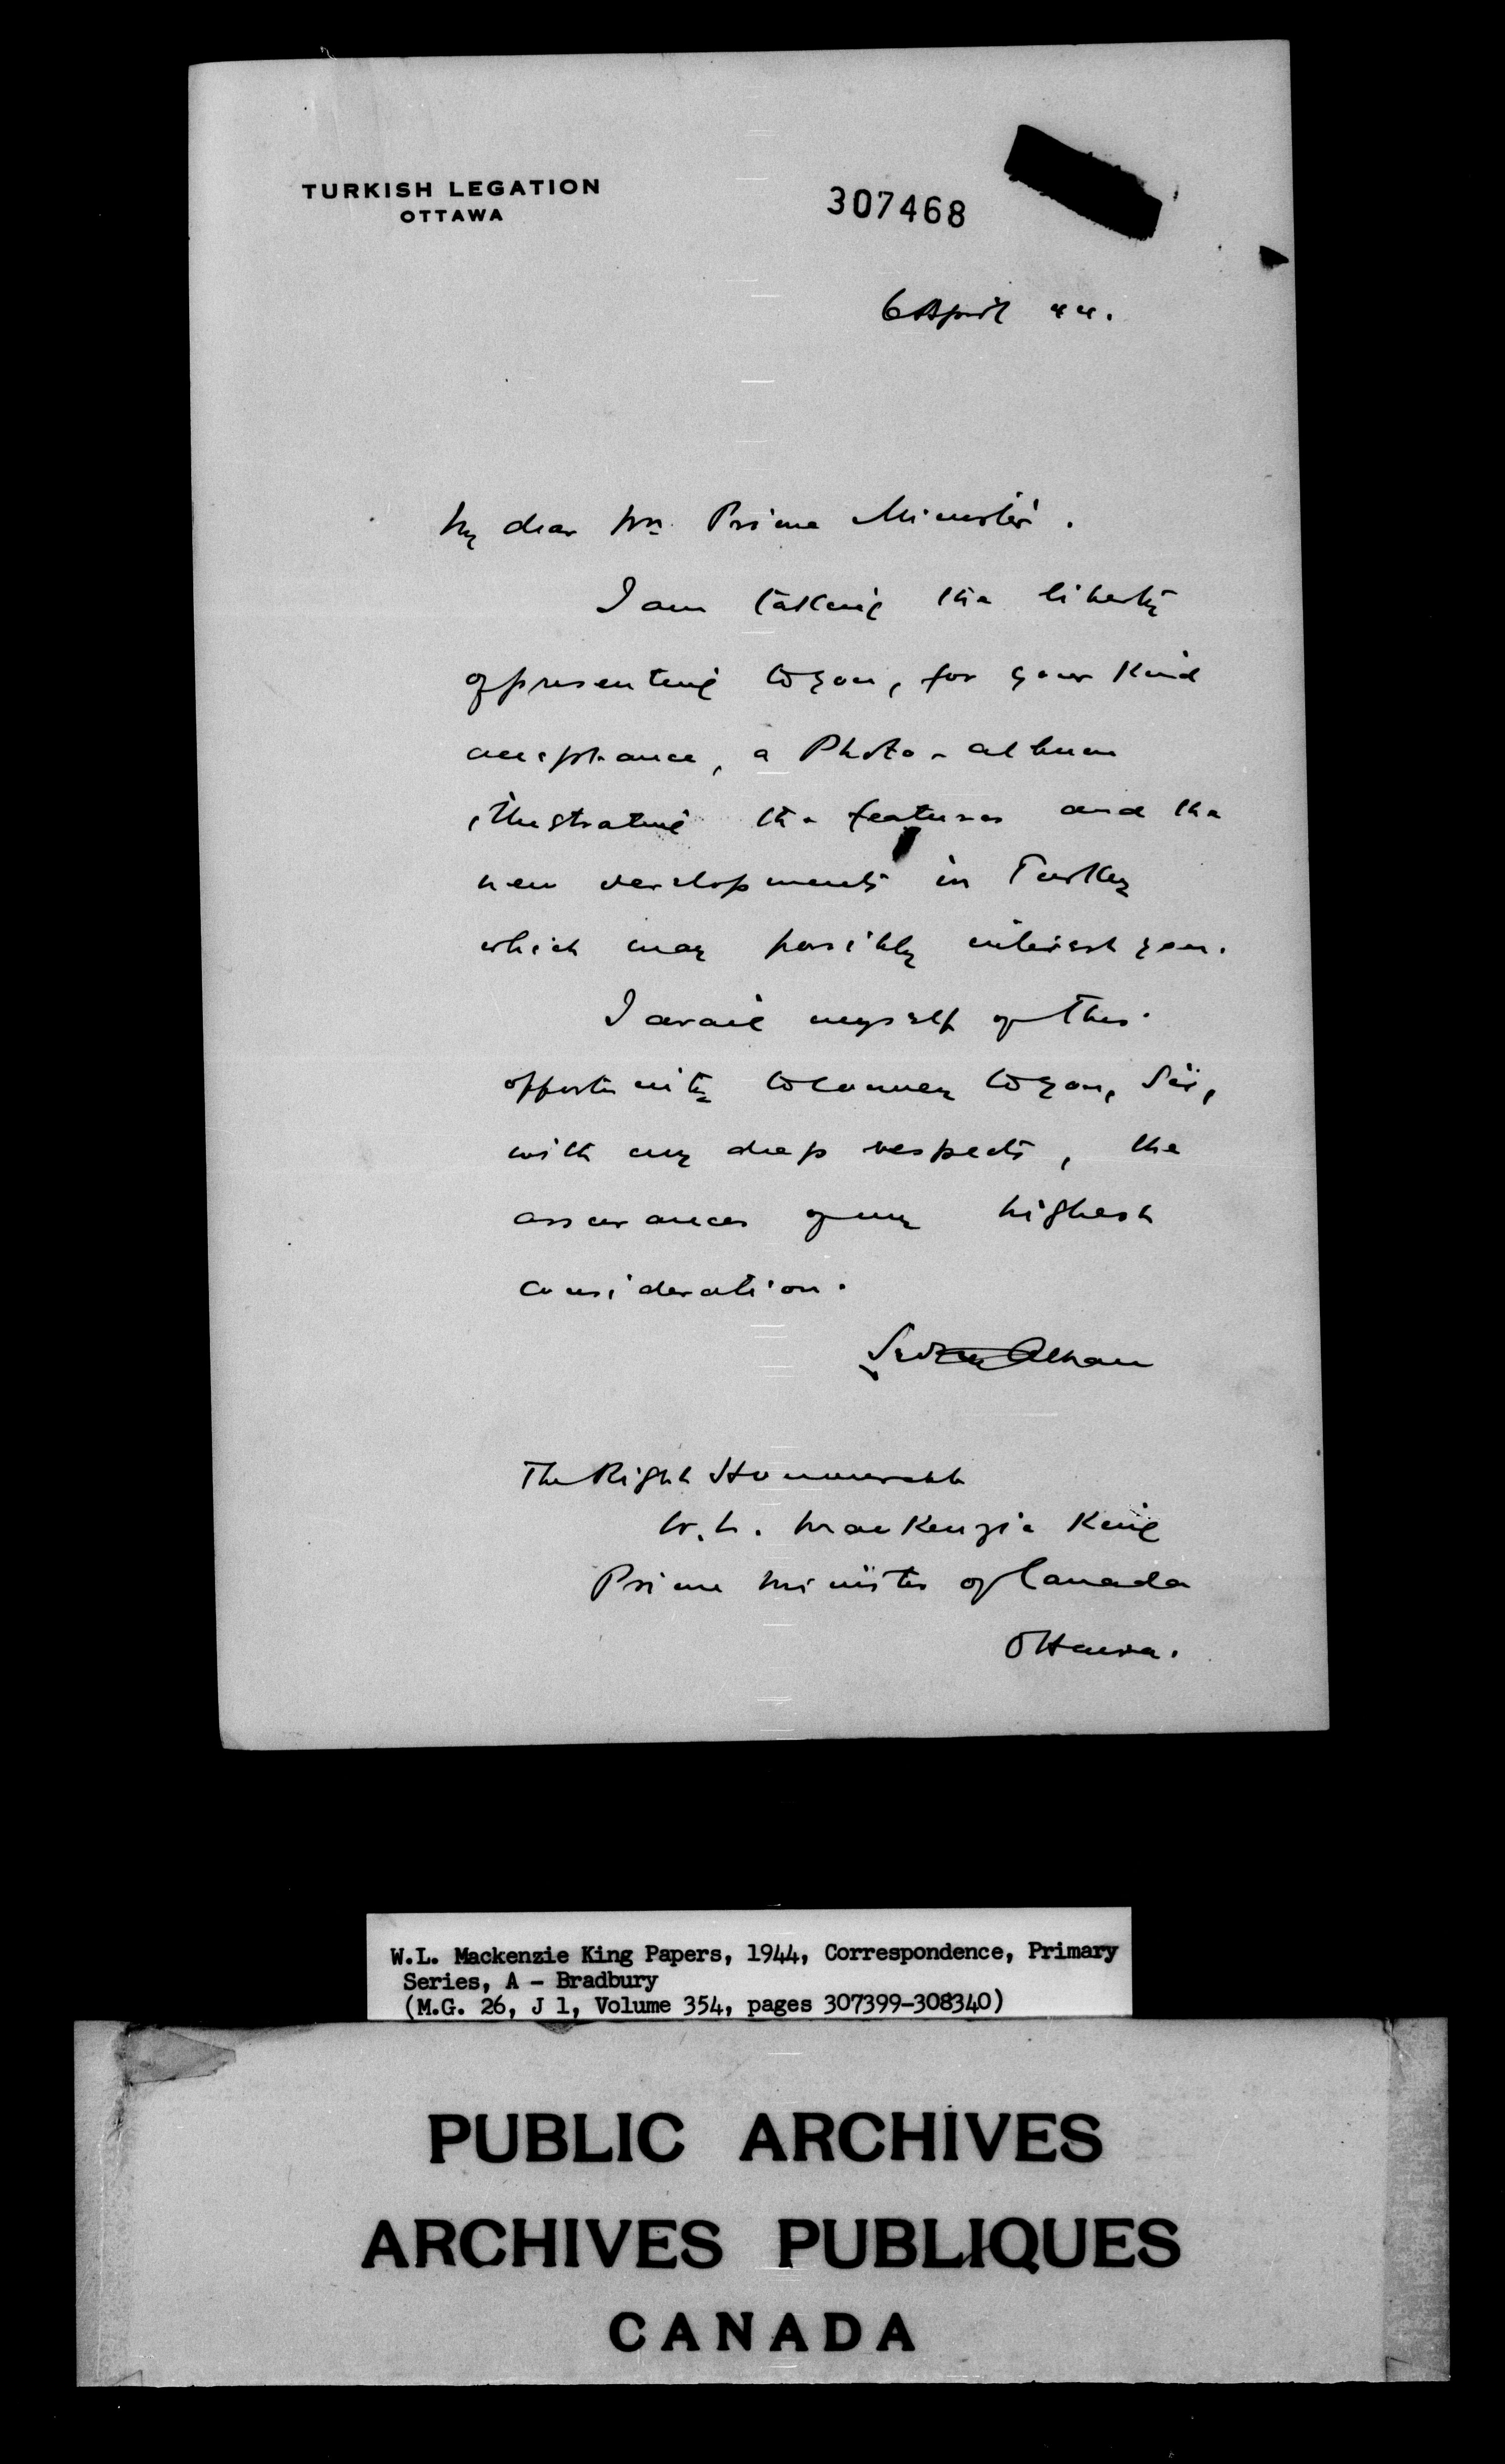 TURKISH LEGATION
OTTAWA
307468
6 April 44.
My dear Mr. Prime Minister.
I am taking the liberty
of presenting to you, for your kind
acceptance, a Photo-album
illustrating the features and the
new developments in Turkey
which may possibly interest you.
I avail myself of this
opportunity to convey to you, Sir,
with my deep respects, the
assurances of my highest
consideration.
The Right Honnourable
W.L. MacKenzie King
Prime Minister of Canada
Ottawa.
W.L. Mackenzie King Papers, 1944, Correspondence, Primary
Series, A - Bradbury
(M.G. 26, J 1, Volume 354, pages 307399-308340)
PUBLIC ARCHIVES
ARCHIVES PUBLIQUES
CANADA